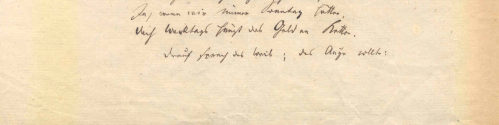 Ja, wenn wir immer Sonntag hätten,
Doch Werktags hängt das Geld an Ketten.
Drauf sprach das Weib; das Auge rollte: